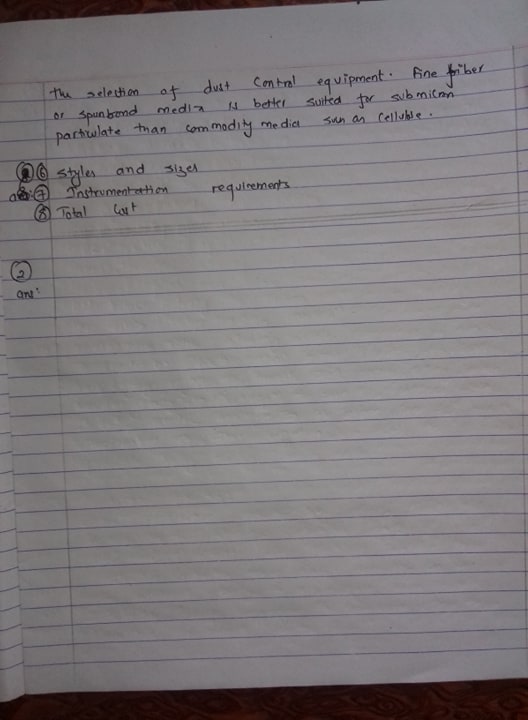 the selection of dust control equipment. Fine fiber
or spunbond media is better suited for submicron
particulate than commodity media such as celluble.
⑥ styles and sizes
⑦ Instrumentation requirements
⑧ Total Cost
②
ans: